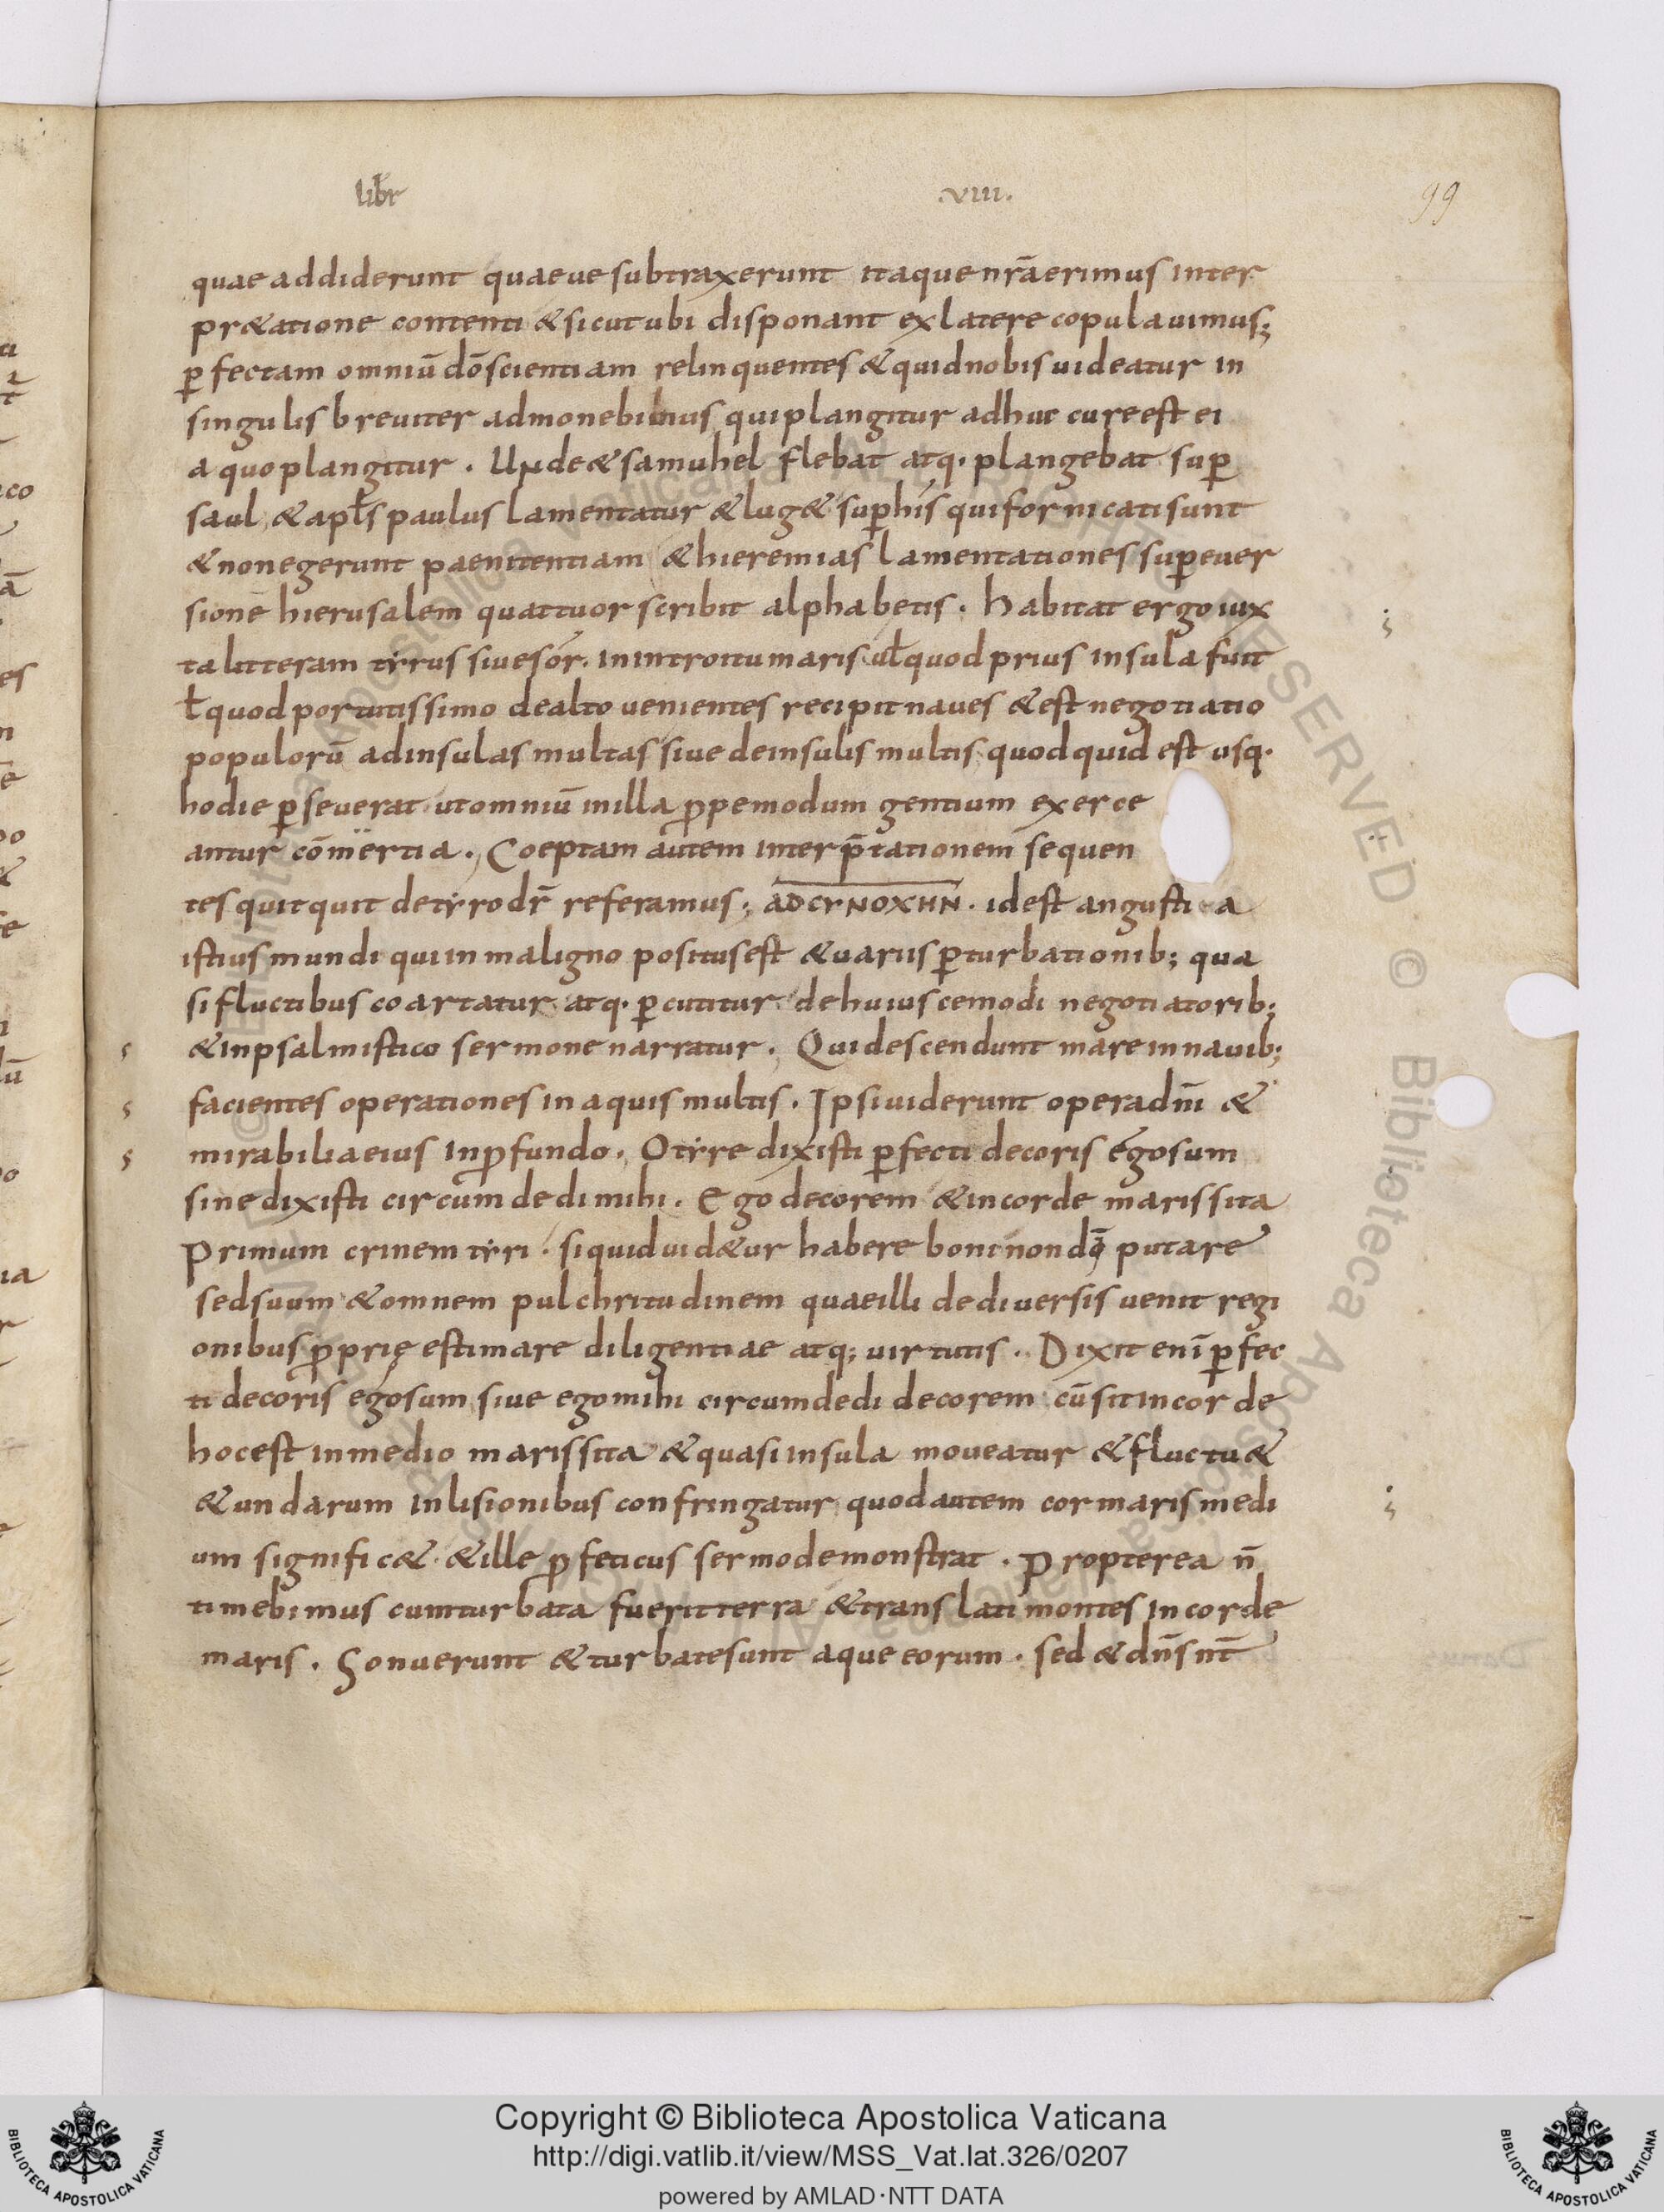 libr̄ .VIII. 99
quae addiderunt quaeue subtraxerunt itaque nr̄a erimus inter
pr&atione contenti & sicut ubi disponant ex latere copulauimus;
ꝑfectam omniū dō scientiam relinquentes & quid nobis uideatur in
singulis breuiter admonebimus qui plangitur adhuc cure est ei
a quo plangitur. Unde & samuhel flebat atq· plangebat suꝑ
saul & apl̄s paulus lamentatur & lug& suꝑ his qui fornicati sunt
& non egerunt paenitentiam & hieremias lamentationes suꝑ euer
sionē hierusalem quattuor scribit alphabetis. habitat ergo iux
ta litteram tyrus siue sor. in introitu maris ul̄ quod prius insula fuit
ł quod portutissimo de alto uenientes recipit naues & est negotiatio
populorū ad insulas multas siue de insulis multis quod quid est usq·
hodie ꝑseuerat ut omniū in illa ꝓpemodum gentium exerce
antur cōmertia. Coeptam autem interp̄tationem sequen
tes quit quit de tyro dr̄ referamus; ADCYNOXHN. id est angusti a
istius mundi qui in maligno positus est & uariis ꝑturbationib; qua
si fluctibus coartatur atq· ꝑcutitur de huiuscemodi negotiatorib;
& in psalmistico sermone narratur. Qui descendunt mare in nauib;
facientes operationes in aquis multis. Ipsi uiderunt opera dn̄i &
mirabilia eius in ꝓfundo. O tyre dixisti ꝑfecti decoris ego sum
sine dixisti circumdedi mihi. Ego decorem & in corde maris sita
Primum crinem tyri. si quid uid&ur habere boni non dō putare
sed suum & omnem pulchritudinem quae illi de diuersis uenit regi
onibus ꝓprię estimare diligentiae atq; uirtutis. Dixit enī ꝑfec
ti decoris ego sum siue ego mihi circumdedi decorem cū sit in corde
hoc est in medio maris sita & quasi insula moueatur & fluctu&
& undarum inlisionibus confringatur quod autem cor maris medi
um signific& & ille ꝓfeticus sermo demonstrat. Propterea n̄
timebimus cum turbata fuerit terra & translati montes in corde
maris. Sonuerunt & turbate sunt aque eorum. sed & dn̄s nt̄
Copyright © Biblioteca Apostolica Vaticana
http://digi.vatlib.it/view/MSS_Vat.lat.326/0207
powered by AMLAD·NTT DATA
BIBLIOTECA APOSTOLICA VATICANA
BIBLIOTECA APOSTOLICA VATICANA